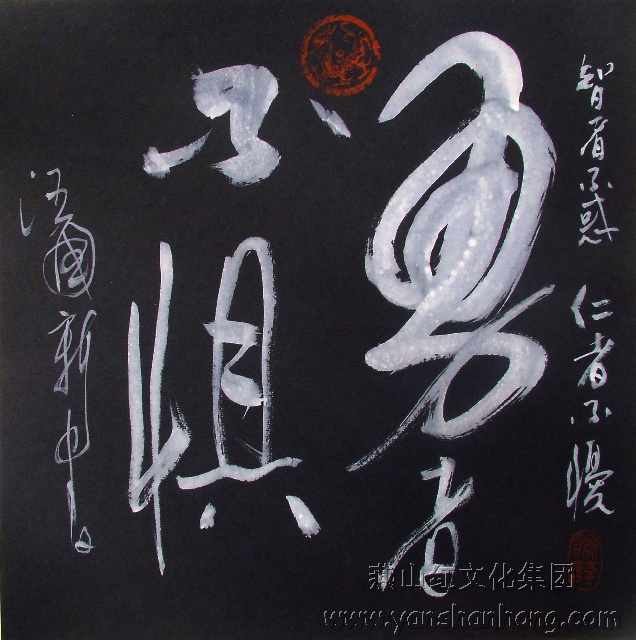 智者不惑 仁者不懮
勇者
不惧
汪國新
燕山红文化集团
www.yanshanhong.com